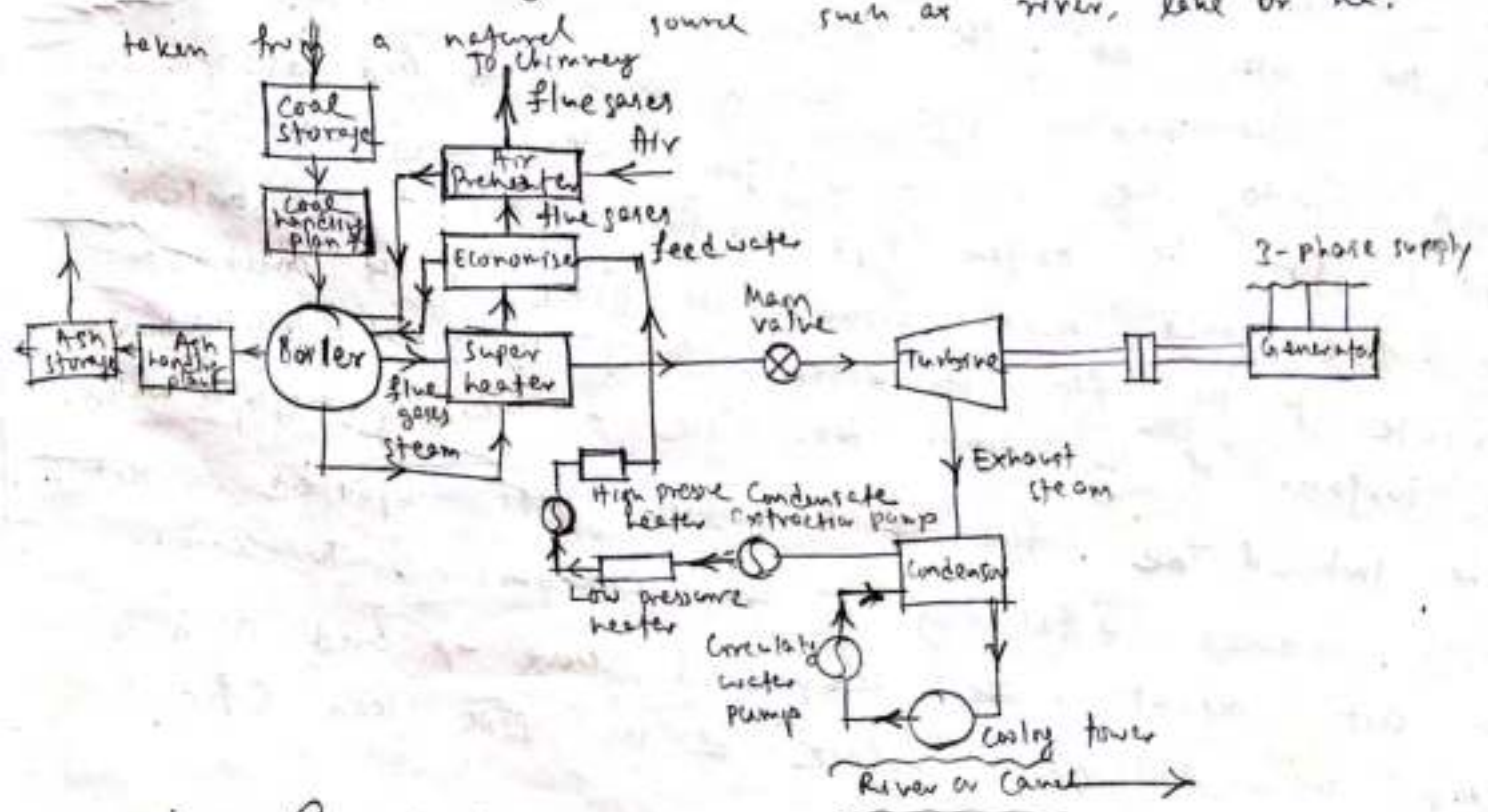 taken from a natural source such as river, lake or
To Chimney
flue gases
Coal
storage
Air
Air
Preheater
Coal
handling
plant
flue gases
feed water
Economise
3-phase supply
Main
valve
Ash
storage
Ash
handling
plant
Boiler
Super
heater
Turbine
Generator
flue
gases
steam
Exhaust
steam
High pressre
heater
Condensate
extraction pump
Condenser
Low pressure
heater
Circulatg
water
pump
Cooling tower
River or Canal